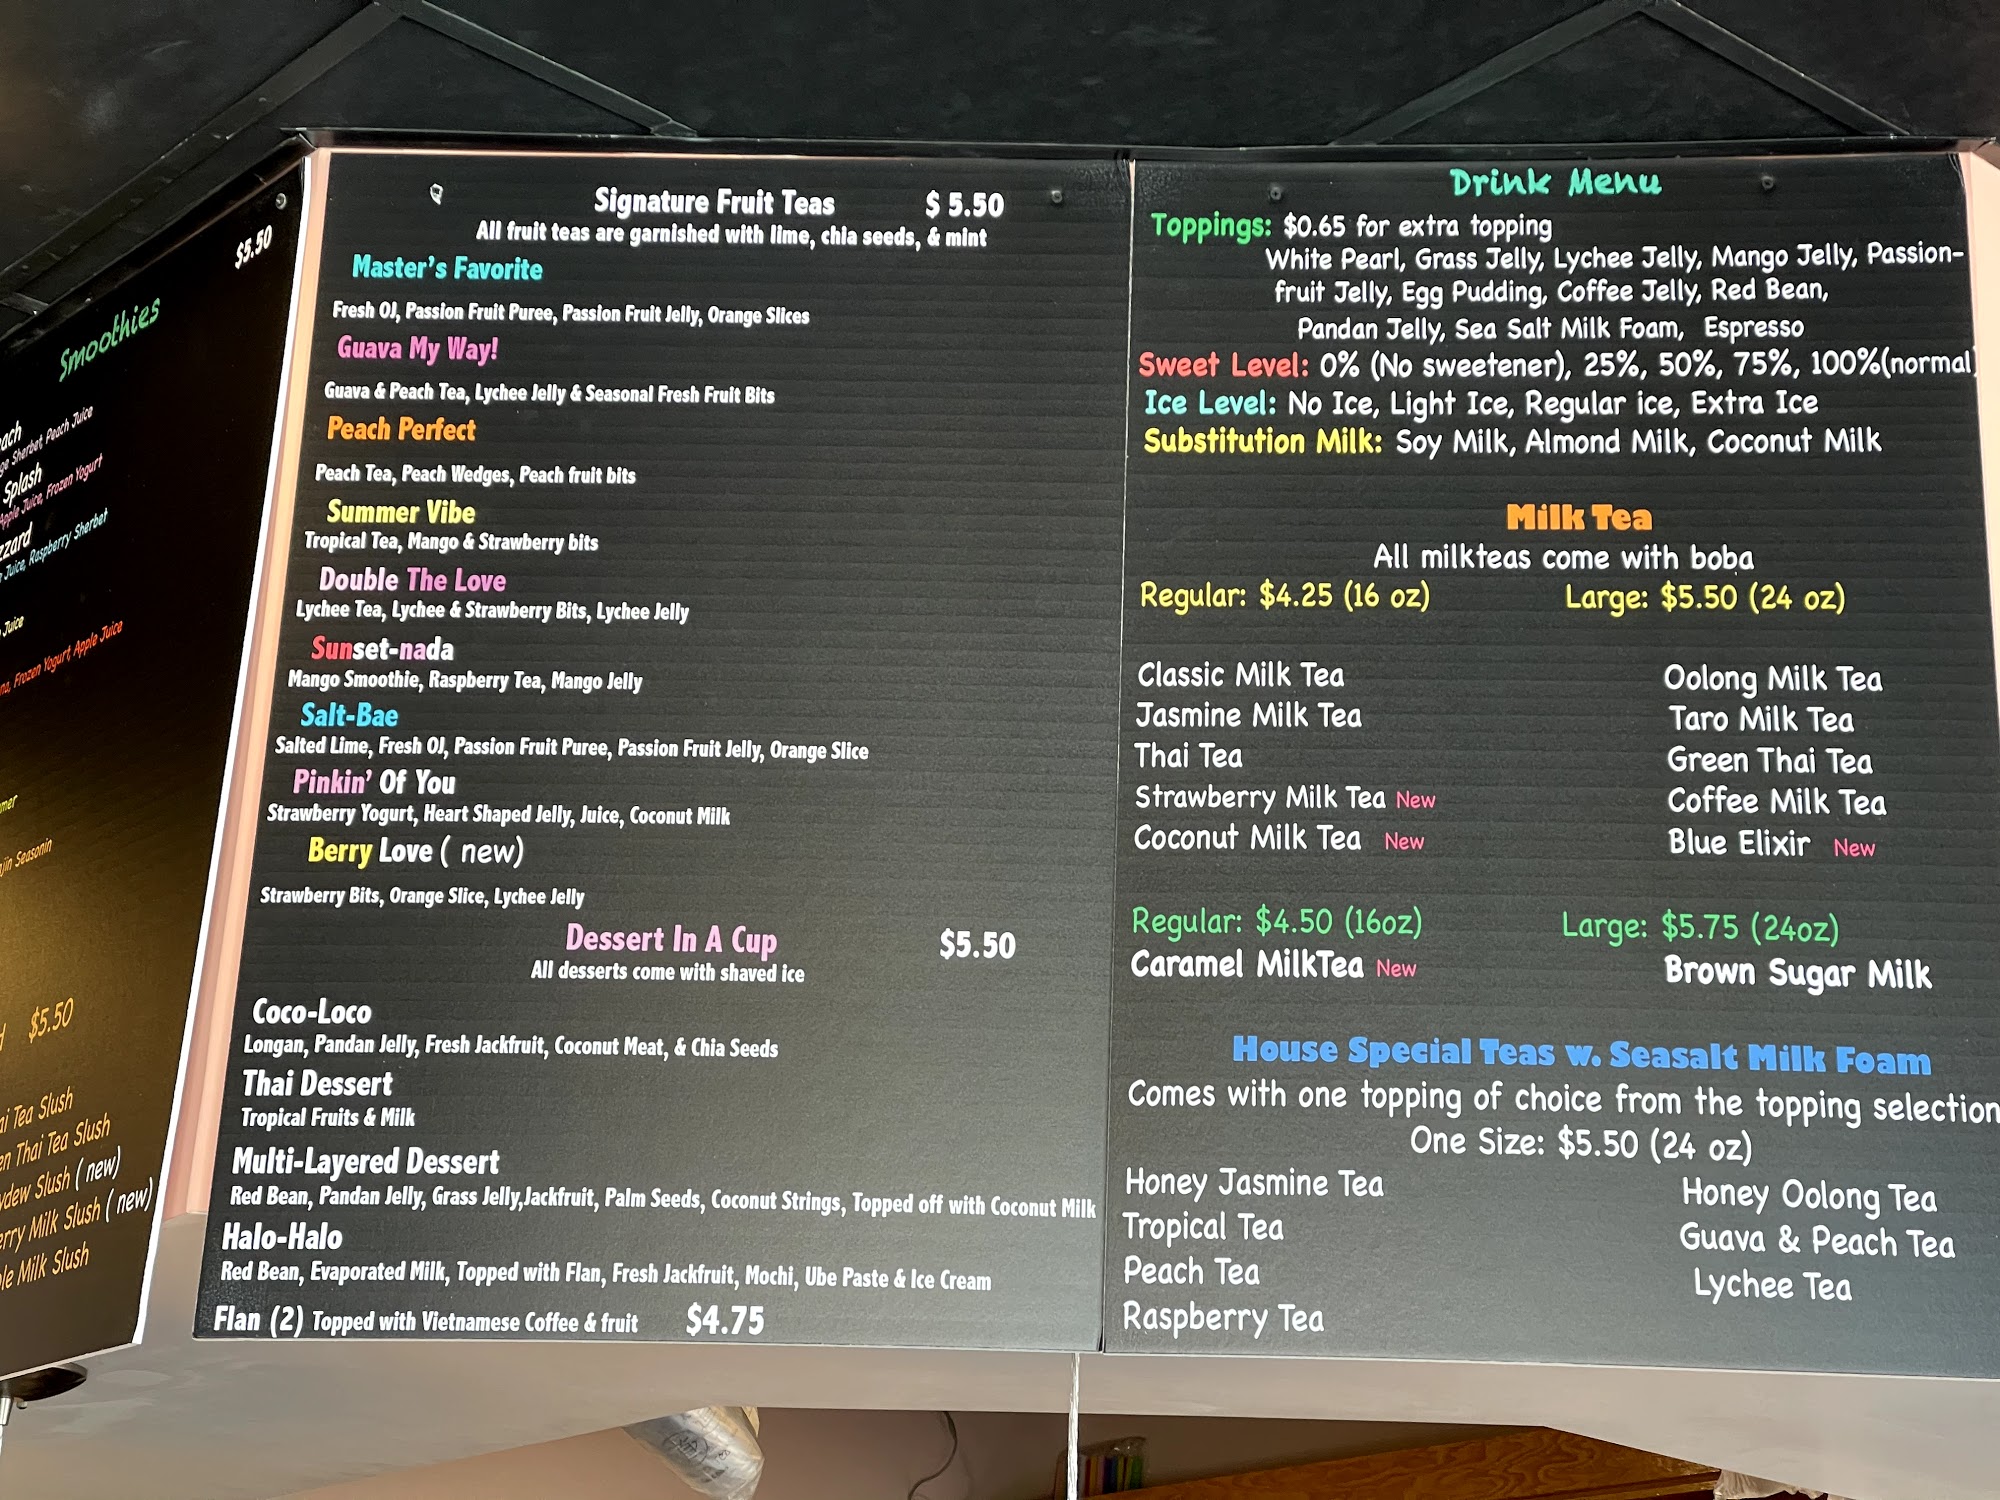 $5.50
Smoothies
Sherbet, Peach Juice
Splash
Apple Juice, Frozen Yogurt
Juice, Raspberry Sherbet
Juice
Frozen Yogurt, Apple Juice
$5.50
Tea Slush
Thai Tea Slush
Slush (new)
Milk Slush (new)
Milk Slush
Signature Fruit Teas $ 5.50
All fruit teas are garnished with lime, chia seeds, & mint
Master's Favorite
Fresh OJ, Passion Fruit Puree, Passion Fruit Jelly, Orange Slices
Guava My Way!
Guava & Peach Tea, Lychee Jelly & Seasonal Fresh Fruit Bits
Peach Perfect
Peach Tea, Peach Wedges, Peach fruit bits
Summer Vibe
Tropical Tea, Mango & Strawberry bits
Double The Love
Lychee Tea, Lychee & Strawberry Bits, Lychee Jelly
Sunset-nada
Mango Smoothie, Raspberry Tea, Mango Jelly
Salt-Bae
Salted Lime, Fresh OJ, Passion Fruit Puree, Passion Fruit Jelly, Orange Slice
Pinkin' Of You
Strawberry Yogurt, Heart Shaped Jelly, Juice, Coconut Milk
Berry Love ( new)
Strawberry Bits, Orange Slice, Lychee Jelly
Dessert In A Cup $5.50
All desserts come with shaved ice
Coco-Loco
Longan, Pandan Jelly, Fresh Jackfruit, Coconut Meat, & Chia Seeds
Thai Dessert
Tropical Fruits & Milk
Multi-Layered Dessert
Red Bean, Pandan Jelly, Grass Jelly,Jackfruit, Palm Seeds, Coconut Strings, Topped off with Coconut Milk
Halo-Halo
Red Bean, Evaporated Milk, Topped with Flan, Fresh Jackfruit, Mochi, Ube Paste & Ice Cream
Flan (2) Topped with Vietnamese Coffee & fruit $4.75
Drink Menu
Toppings: $0.65 for extra topping
White Pearl, Grass Jelly, Lychee Jelly, Mango Jelly, Passion-
fruit Jelly, Egg Pudding, Coffee Jelly, Red Bean,
Pandan Jelly, Sea Salt Milk Foam, Espresso
Sweet Level: 0% (No sweetener), 25%, 50%, 75%, 100%(normal)
Ice Level: No Ice, Light Ice, Regular ice, Extra Ice
Substitution Milk: Soy Milk, Almond Milk, Coconut Milk
Milk Tea
All milkteas come with boba
Regular: $4.25 (16 oz) Large: $5.50 (24 oz)
Classic Milk Tea Oolong Milk Tea
Jasmine Milk Tea Taro Milk Tea
Thai Tea Green Thai Tea
Strawberry Milk Tea New Coffee Milk Tea
Coconut Milk Tea New Blue Elixir New
Regular: $4.50 (16oz) Large: $5.75 (24oz)
Caramel MilkTea New Brown Sugar Milk
House Special Teas w. Seasalt Milk Foam
Comes with one topping of choice from the topping selection
One Size: $5.50 (24 oz)
Honey Jasmine Tea Honey Oolong Tea
Tropical Tea Guava & Peach Tea
Peach Tea Lychee Tea
Raspberry Tea